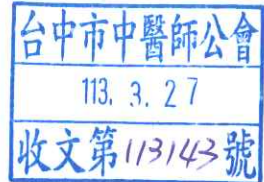 台中市中醫師公會
113. 3. 27
收文第113143號